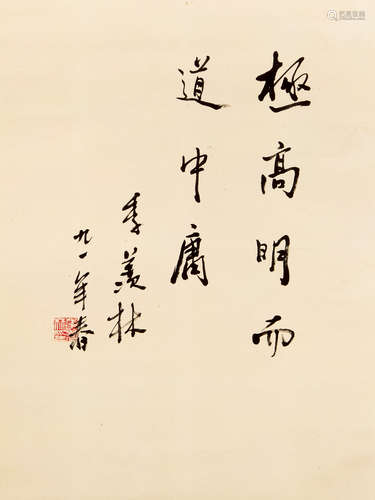 極高明而
道中庸
季羨林
九一年春